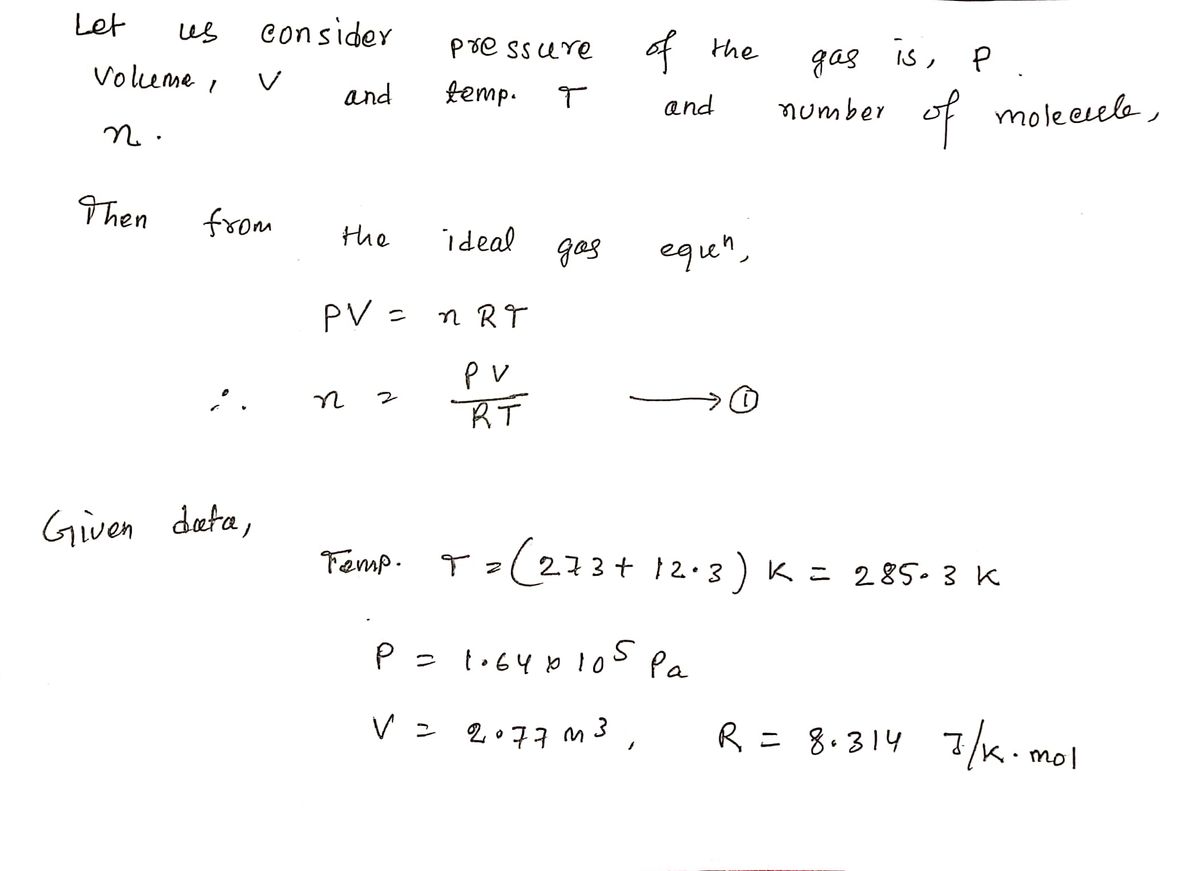 Let us consider pressure of the gas is, P.
Volume, V and temp. T and number of molecule,
n.
Then from the ideal gas equⁿ,
PV = nRT
∴ n = PV/RT ⟶ ①
Given data,
Temp. T = (273 + 12.3) K = 285.3 K
P = 1.64 × 10⁵ Pa
V = 2.77 m³, R = 8.314 J/K.mol